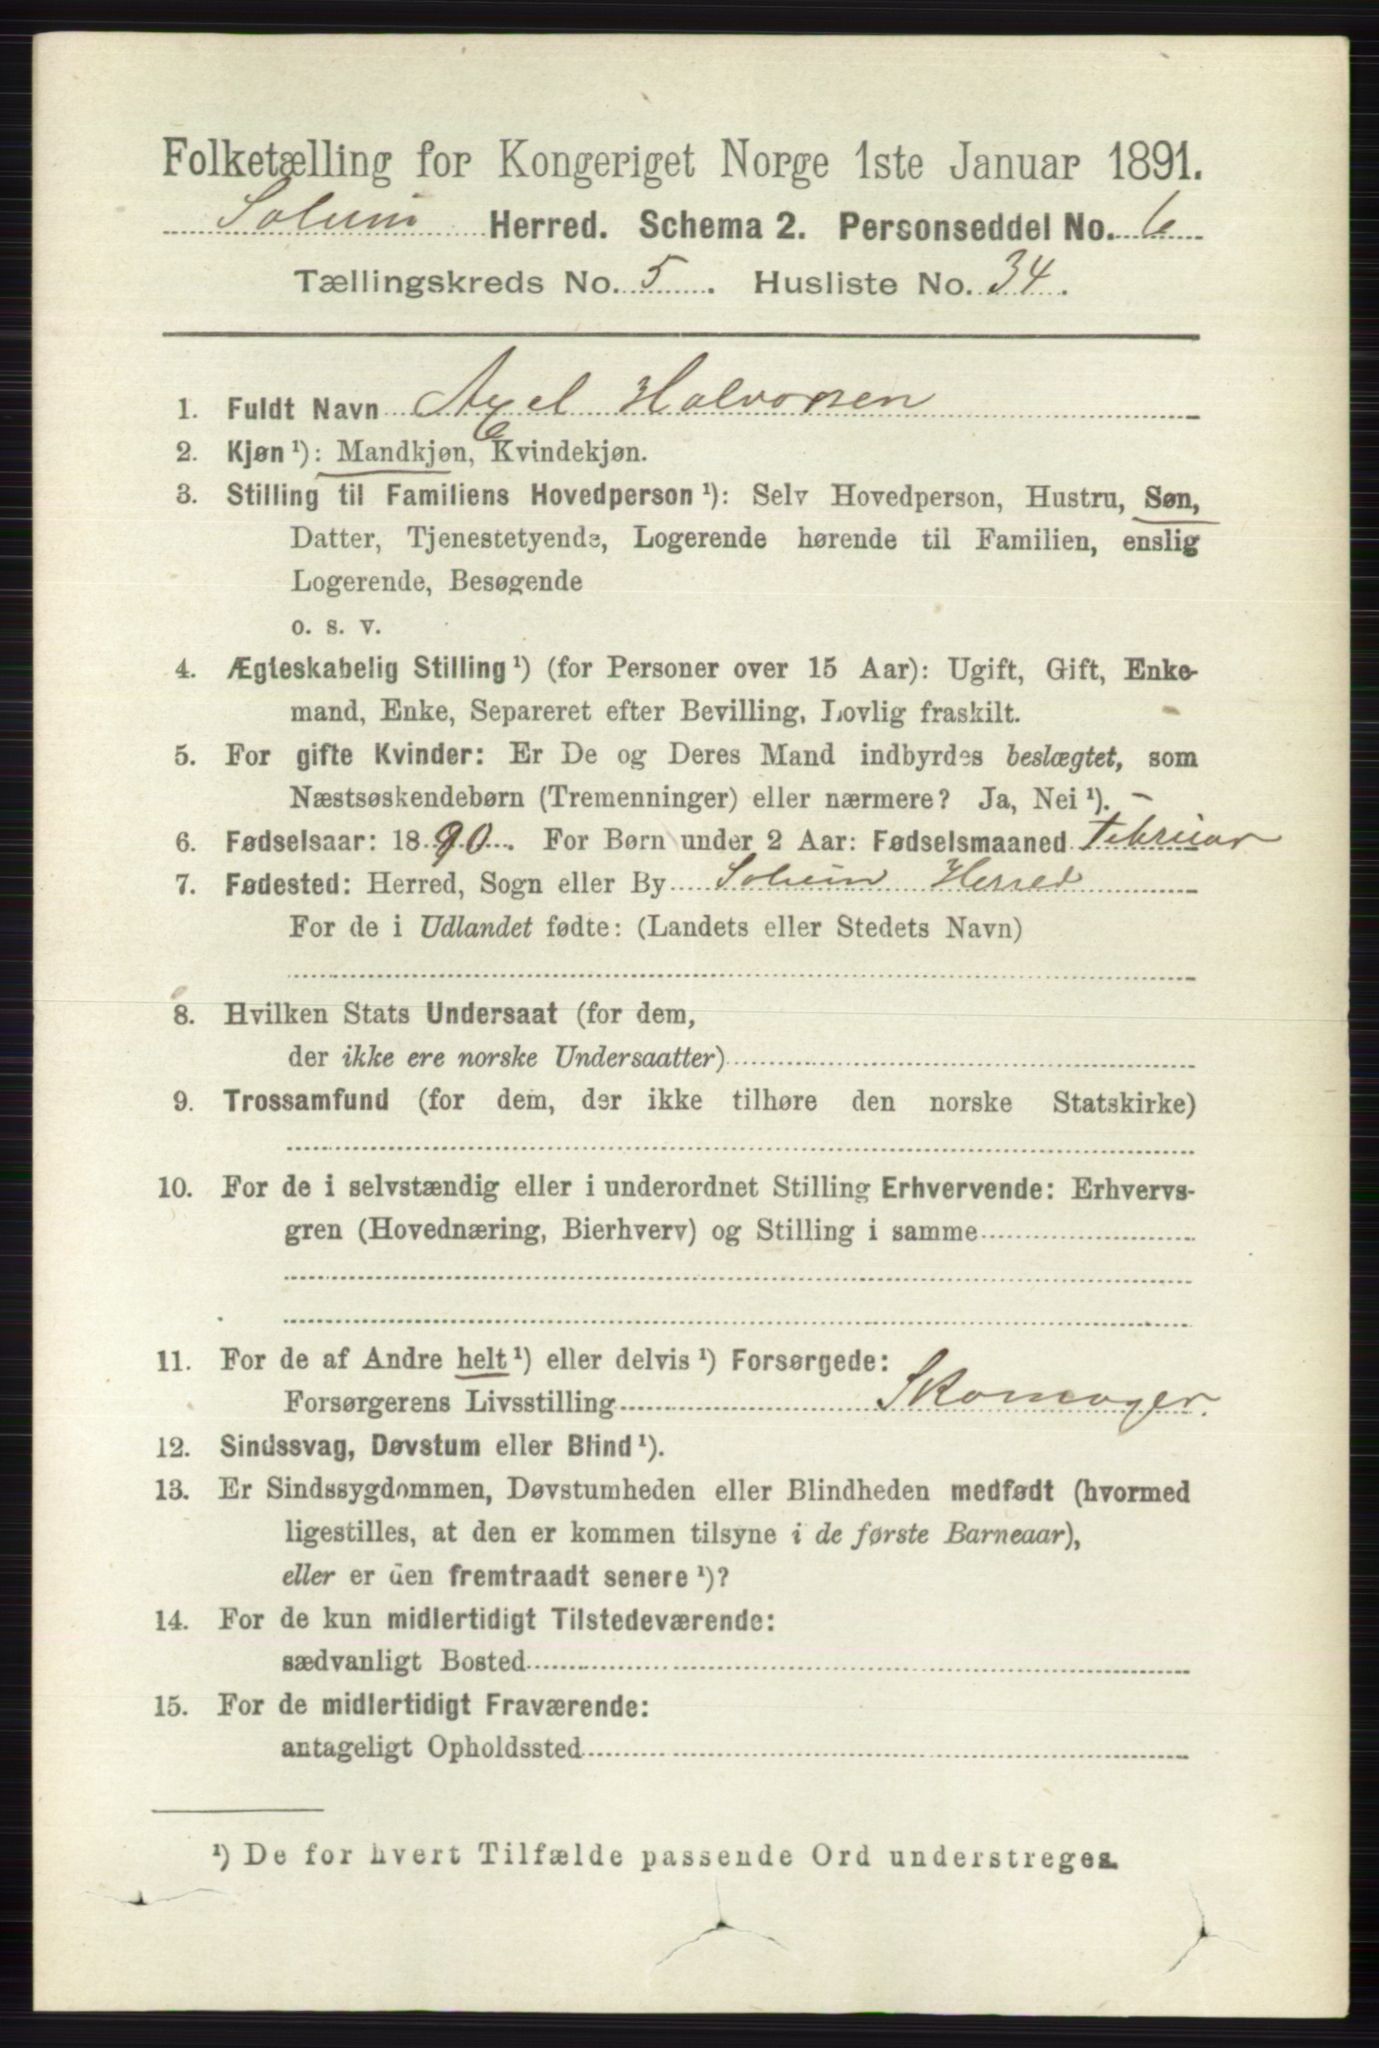 Folketælling for Kongeriget Norge 1ste Januar 1891.
Solum Herred. Schema 2. Personseddel No. 6
Tællingskreds No. 5. Husliste No. 34.
1. Fuldt Navn Axel Halvorsen
2. Kjøn ¹): Mandkjøn, Kvindekjøn.
3. Stilling til Familiens Hovedperson ¹): Selv Hovedperson, Hustru, Søn,
Datter, Tjenestetyende, Logerende hørende til Familien, enslig
Logerende, Besøgende
o. s. v.
4. Ægteskabelig Stilling ¹) (for Personer over 15 Aar): Ugift, Gift, Enke-
mand, Enke, Separeret efter Bevilling, Lovlig fraskilt.
5. For gifte Kvinder: Er De og Deres Mand indbyrdes beslægtet, som
Næstsøskendebørn (Tremenninger) eller nærmere? Ja, Nei ¹). –
6. Fødselsaar: 1890. For Børn under 2 Aar: Fødselsmaaned Februar
7. Fødested: Herred, Sogn eller By Solum Herred
For de i Udlandet fødte: (Landets eller Stedets Navn)
8. Hvilken Stats Undersaat (for dem,
der ikke ere norske Undersaatter)
9. Trossamfund (for dem, der ikke tilhøre den norske Statskirke)
10. For de i selvstændig eller i underordnet Stilling Erhvervende: Erhvervs-
gren (Hovednæring, Bierhverv) og Stilling i samme
11. For de af Andre helt ¹) eller delvis ¹) Forsørgede:
Forsørgerens Livsstilling Skomager.
12. Sindssvag, Døvstum eller Blind ¹).
13. Er Sindssygdommen, Døvstumheden eller Blindheden medfødt (hvormed
ligestilles, at den er kommen tilsyne i de første Barneaar),
eller er den fremtraadt senere ¹)?
14. For de kun midlertidigt Tilstedeværende:
sædvanligt Bosted
15. For de midlertidigt Fraværende:
antageligt Opholdssted
¹) De for hvert Tilfælde passende Ord understreges.